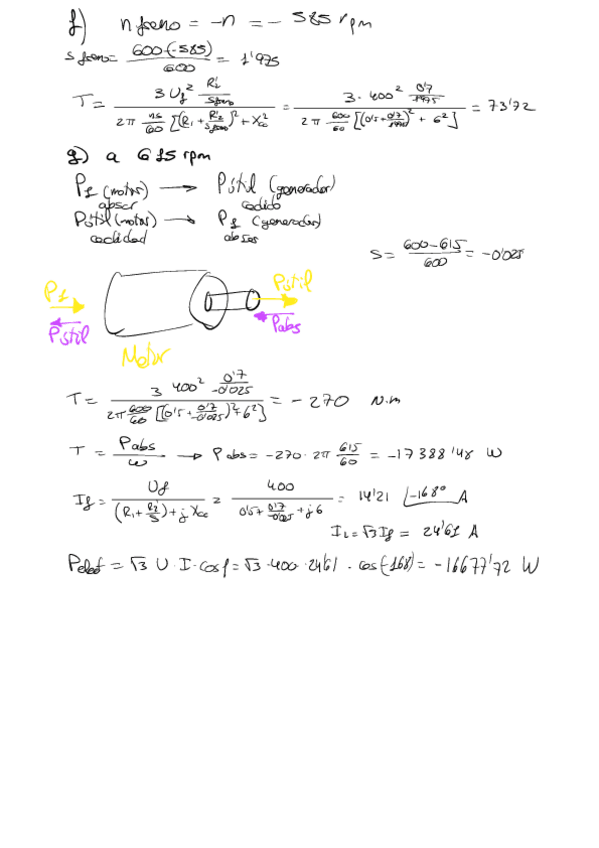 f) n freno = -n = - 585 rpm
S freno = 600-(-585) / 600 = 1'975
T = 3 Uf² R2'/Sfreno / 2π ns/60 [(R1 + R2'/Sfreno)² + Xcc²] = 3 · 400² 0'7/1'975 / 2π 600/60 [(0'5+0'7/1'975)² + 6²] = 73'72
g) a 615 rpm
P1 (motor) → Pútil (generador)
absor cedido
Pútil (motor) → P1 (generador)
cedidad absor
S = 600-615 / 600 = -0'025
P1 Pútil
Pútil Pabs
Motor
T = 3 400² 0'7/-0'025 / 2π 600/60 [(0'5+0'7/-0'025)²+6²] = - 270 N.m
T = Pabs / ω → Pabs = -270 · 2π 615/60 = -17388'48 W
If = Uf / (R1 + R2'/S) + j Xcc = 400 / 0'5+ 0'7/-0'025 + j6 = 14'21 |-168° A
IL = √3 If = 24'61 A
Pelect = √3 U · I · cosφ = √3 · 400 · 24'61 · cos(-168) = -16677'72 W